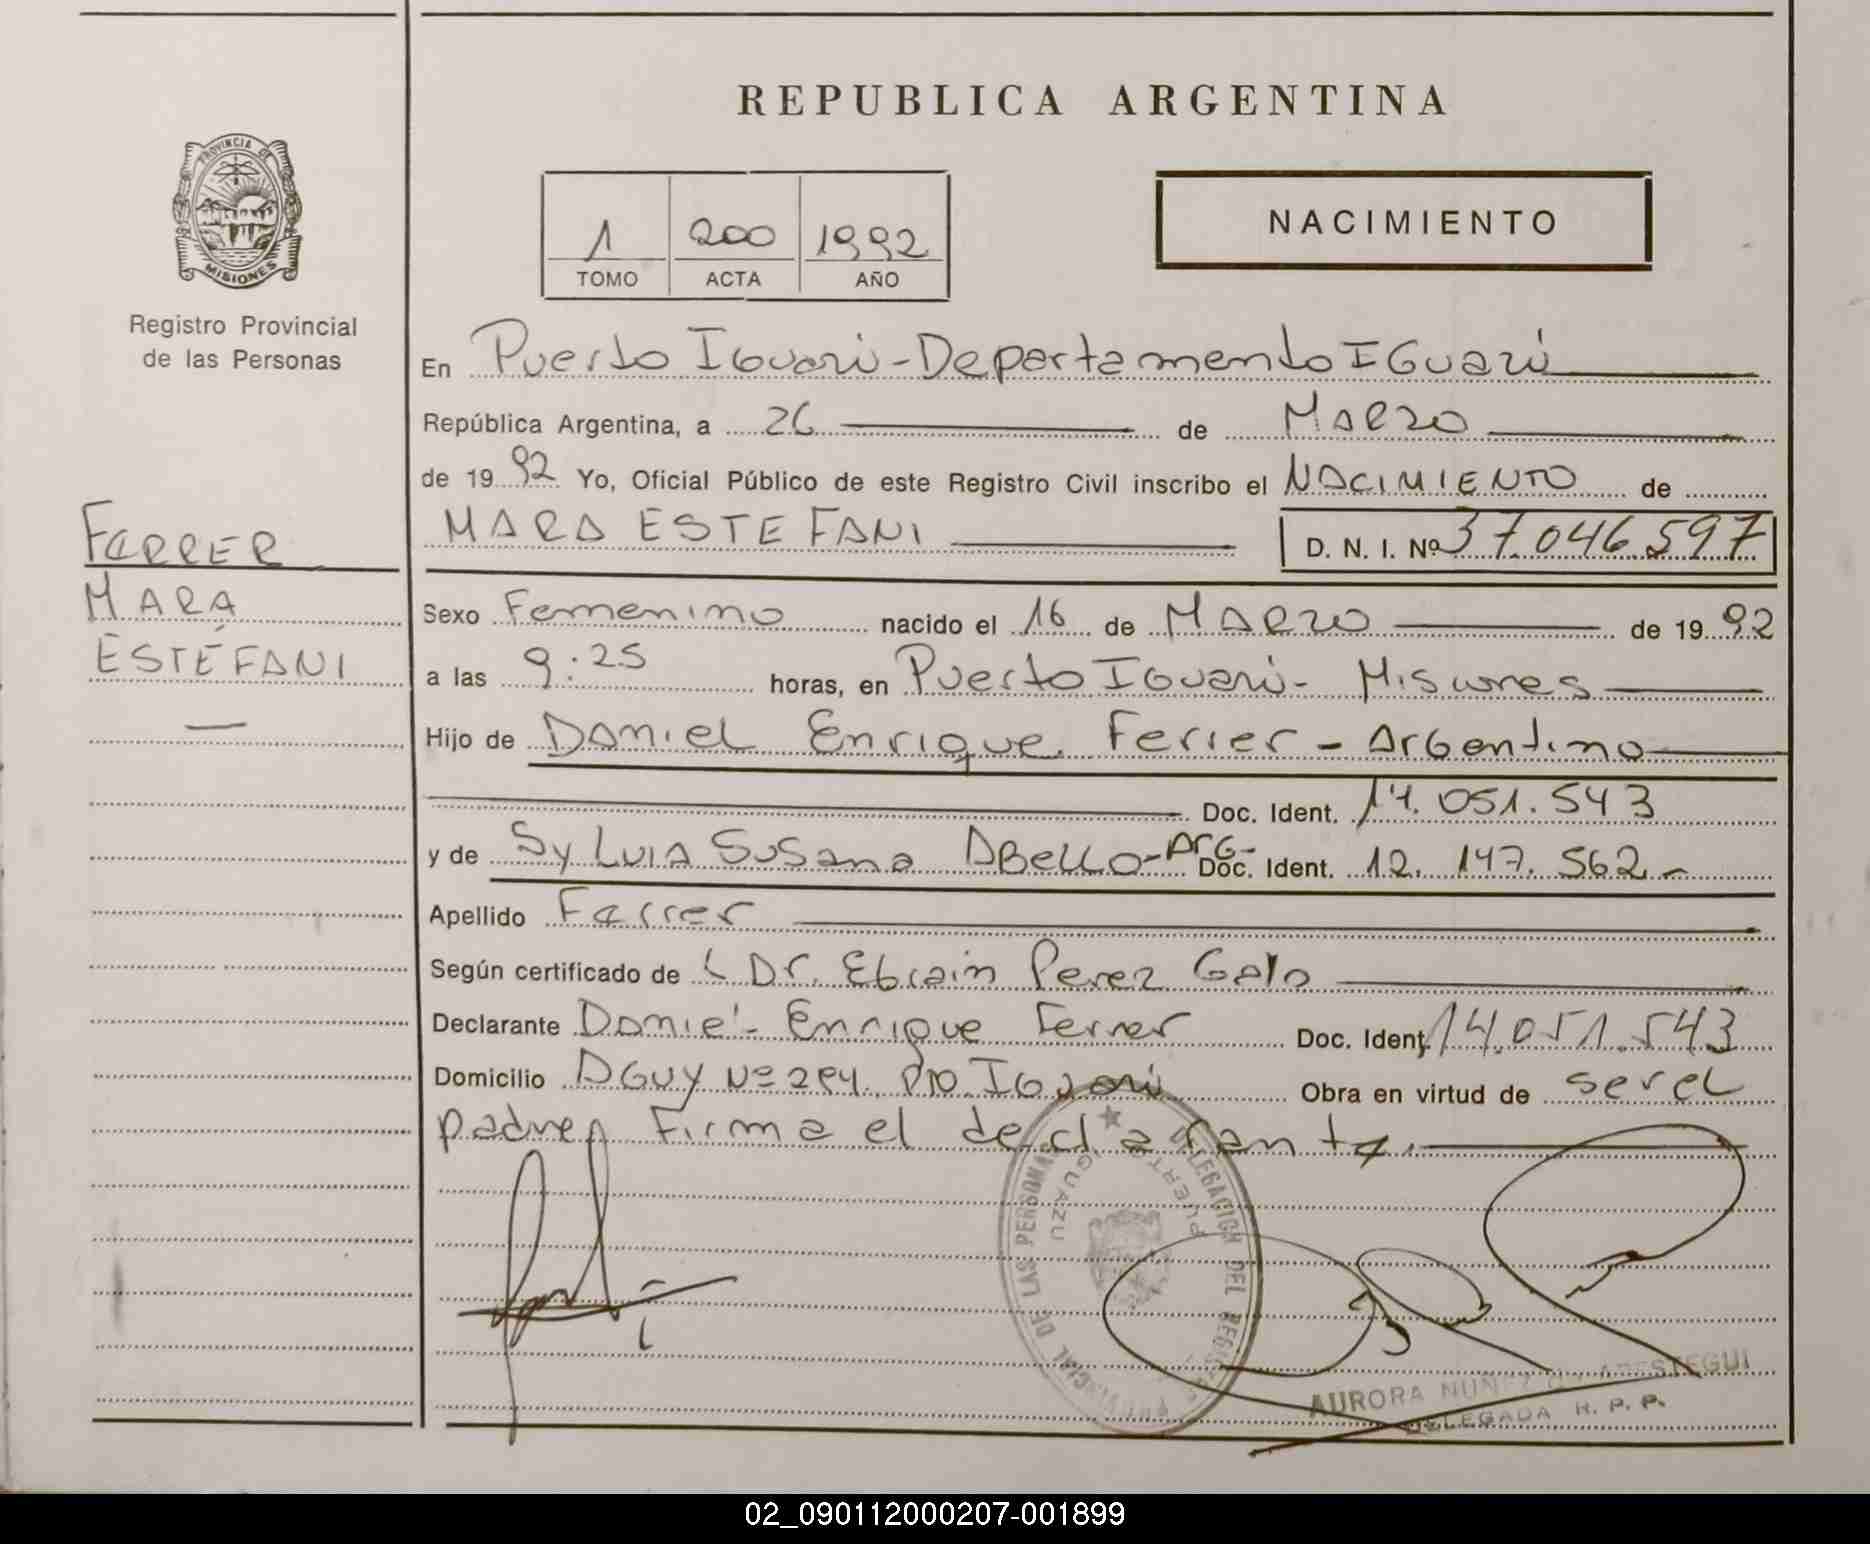 REPUBLICA ARGENTINA
PROVINCIA DE
MISIONES
Registro Provincial
de las Personas
1 200 1992
TOMO ACTA AÑO
NACIMIENTO
En Puerto Iguazú - Departamento IGuazú
República Argentina, a 26 de MARZO
de 1992 Yo, Oficial Público de este Registro Civil inscribo el NACIMIENTO de
MARA ESTEFANI D. N. I. Nº 37.046.597
FERRER
MARA
ESTÉFANI
Sexo Femenino nacido el 16 de MARZO de 1992
a las 9:25 horas, en Puerto Iguazú - Misiones
Hijo de Daniel Enrique Ferrer - Argentino
Doc. Ident. 14.051.543
y de SyLvia Susana Abello - Arg- Doc. Ident. 12.147.562.-
Apellido Ferrer
Según certificado de Dr. Efrain Perez
Declarante Daniel Enrique Ferrer Doc. Ident. 14.051.543
Domicilio AGuy Nº Pto. Iguazú Obra en virtud de ser el
padre, Firma el declarante.
DELEGACION DEL REGISTRO PROVINCIAL DE LAS PERSONAS
PUERTO IGUAZU
AURORA NUÑEZ ARESTEGUI
DELEGADA R. P. P.
02_090112000207-001899